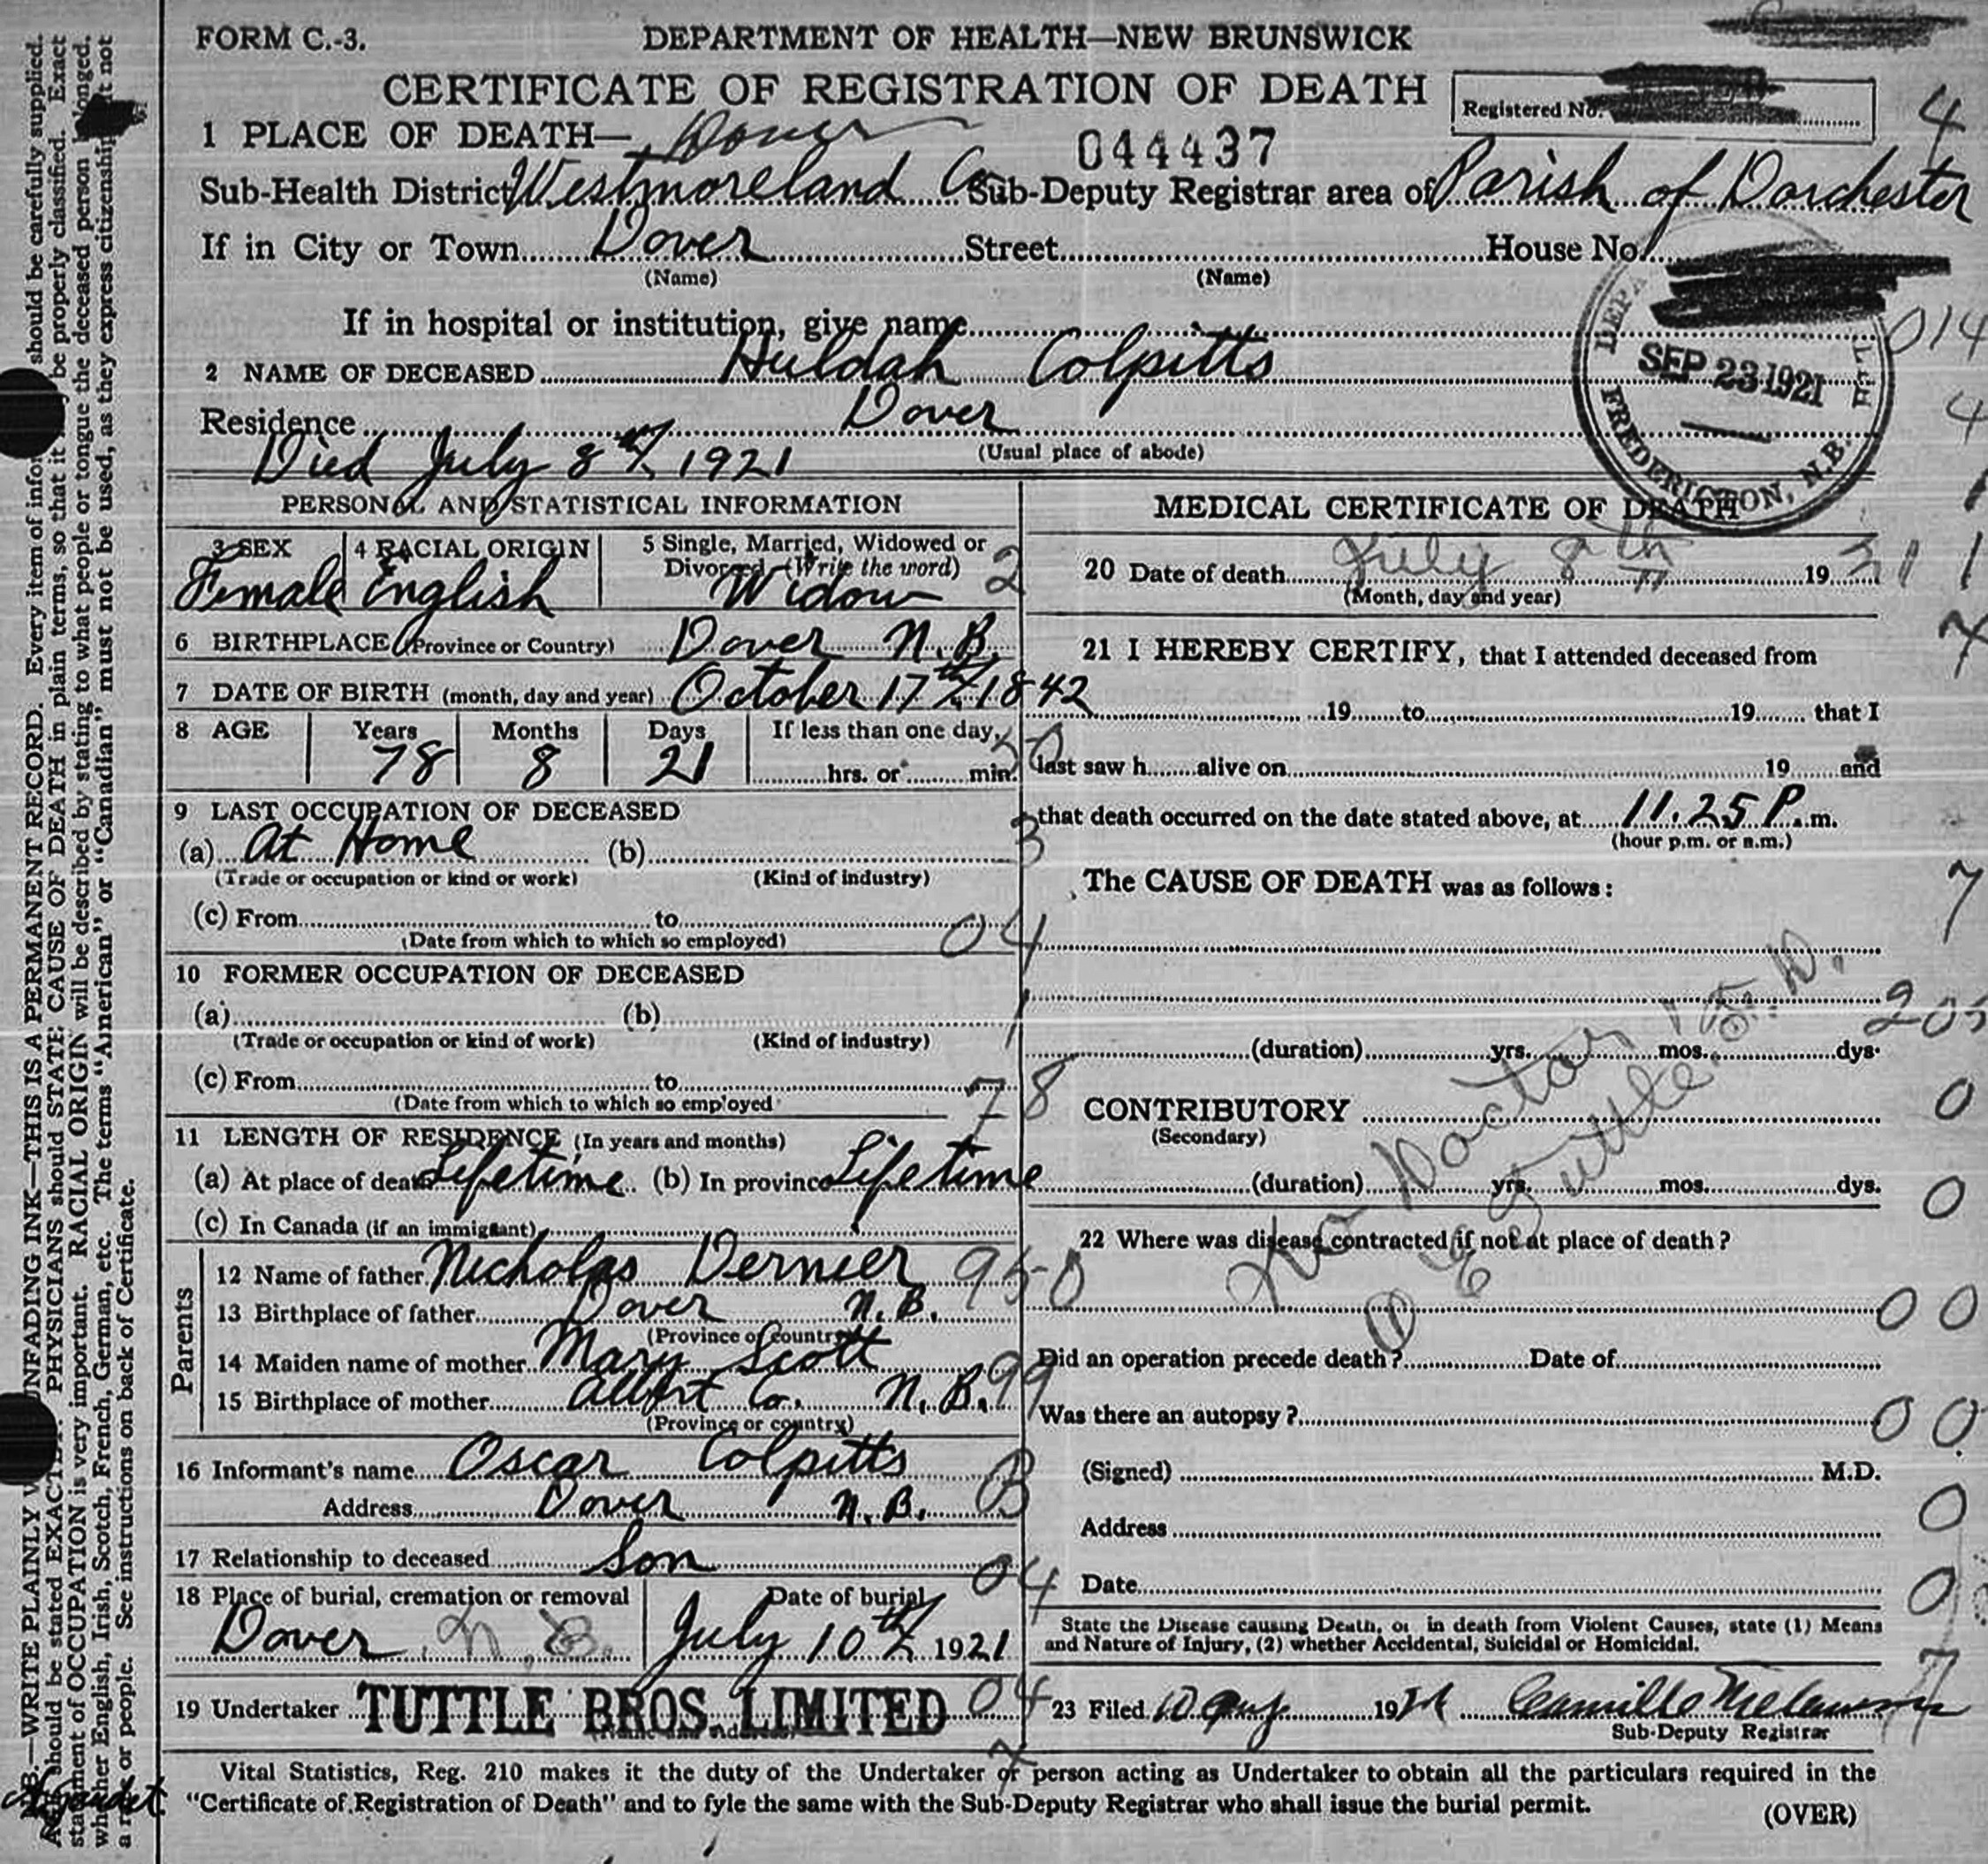 FORM C.-3.
DEPARTMENT OF HEALTH—NEW BRUNSWICK
CERTIFICATE OF REGISTRATION OF DEATH
Registered No.
4
1 PLACE OF DEATH— Dover
044437
Sub-Health District Westmoreland Co. Sub-Deputy Registrar area of Parish of Dorchester
If in City or Town Dover Street House No.
(Name) (Name)
If in hospital or institution, give name
014
DEPA LTH
SEP 23 1921
FREDERICTON, N.B.
2 NAME OF DECEASED Huldah Colpitts
4
Residence Dover
(Usual place of abode)
Died July 8th 1921
1
PERSONAL AND STATISTICAL INFORMATION
3 SEX 4 RACIAL ORIGIN 5 Single, Married, Widowed or
Divorced (Write the word)
Female English Widow 2
6 BIRTHPLACE (Province or Country) Dover N.B.
7 DATE OF BIRTH (month, day and year) October 17th 1842
8 AGE Years Months Days If less than one day,
78 8 21 hrs. or min.
9 LAST OCCUPATION OF DECEASED
(a) At Home (b) 3
(Trade or occupation or kind or work) (Kind of industry)
(c) From to 04
(Date from which to which so employed)
10 FORMER OCCUPATION OF DECEASED
(a) (b) 1
(Trade or occupation or kind of work) (Kind of industry)
(c) From to 78
(Date from which to which so employed
11 LENGTH OF RESIDENCE (In years and months)
(a) At place of death Lifetime (b) In province Lifetime
(c) In Canada (if an immigrant)
Parents
12 Name of father Nicholas Dernier 950
13 Birthplace of father Dover N.B.
(Province or country)
14 Maiden name of mother Mary Scott
15 Birthplace of mother Albert Co. N.B. 99
(Province or country)
16 Informant's name Oscar Colpitts
Address Dover N.B. B
17 Relationship to deceased Son
04
18 Place of burial, cremation or removal Date of burial
Dover N.B. July 10th 1921
19 Undertaker TUTTLE BROS. LIMITED 04
MEDICAL CERTIFICATE OF DEATH
20 Date of death July 8th 19 21 1
(Month, day and year)
7
21 I HEREBY CERTIFY, that I attended deceased from
19 to 19 that I
last saw h alive on 19 and
that death occurred on the date stated above, at 11.25 P.m.
(hour p.m. or a.m.)
The CAUSE OF DEATH was as follows:
7
205
(duration) yrs. mos. dys.
CONTRIBUTORY 0
(Secondary)
(duration) yrs. mos. dys. 0
No Doctor
Tuttle
22 Where was disease contracted if not at place of death?
00
Did an operation precede death? Date of
Was there an autopsy? 00
(Signed) M.D.
Address 0
Date 0
State the Disease causing Death, or in death from Violent Causes, state (1) Means
and Nature of Injury, (2) whether Accidental, Suicidal or Homicidal.
23 Filed 10 Aug. 1921 Camille
Sub-Deputy Registrar
Vital Statistics, Reg. 210 makes it the duty of the Undertaker or person acting as Undertaker to obtain all the particulars required in the
"Certificate of Registration of Death" and to fyle the same with the Sub-Deputy Registrar who shall issue the burial permit.
(OVER)
N.B.—WRITE PLAINLY UNFADING INK—THIS IS A PERMANENT RECORD. Every item of infor should be carefully supplied.
AGE should be stated EXACTLY. PHYSICIANS should STATE CAUSE OF DEATH in plain terms, so that it be properly classified. Exact
statement of OCCUPATION is very important. RACIAL ORIGIN will be described by stating to what people or tongue the deceased person belonged.
whether English, Irish, Scotch, French, German, etc. The terms "American" or "Canadian" must not be used, as they express citizenship not
a race or people. See instructions on back of Certificate.